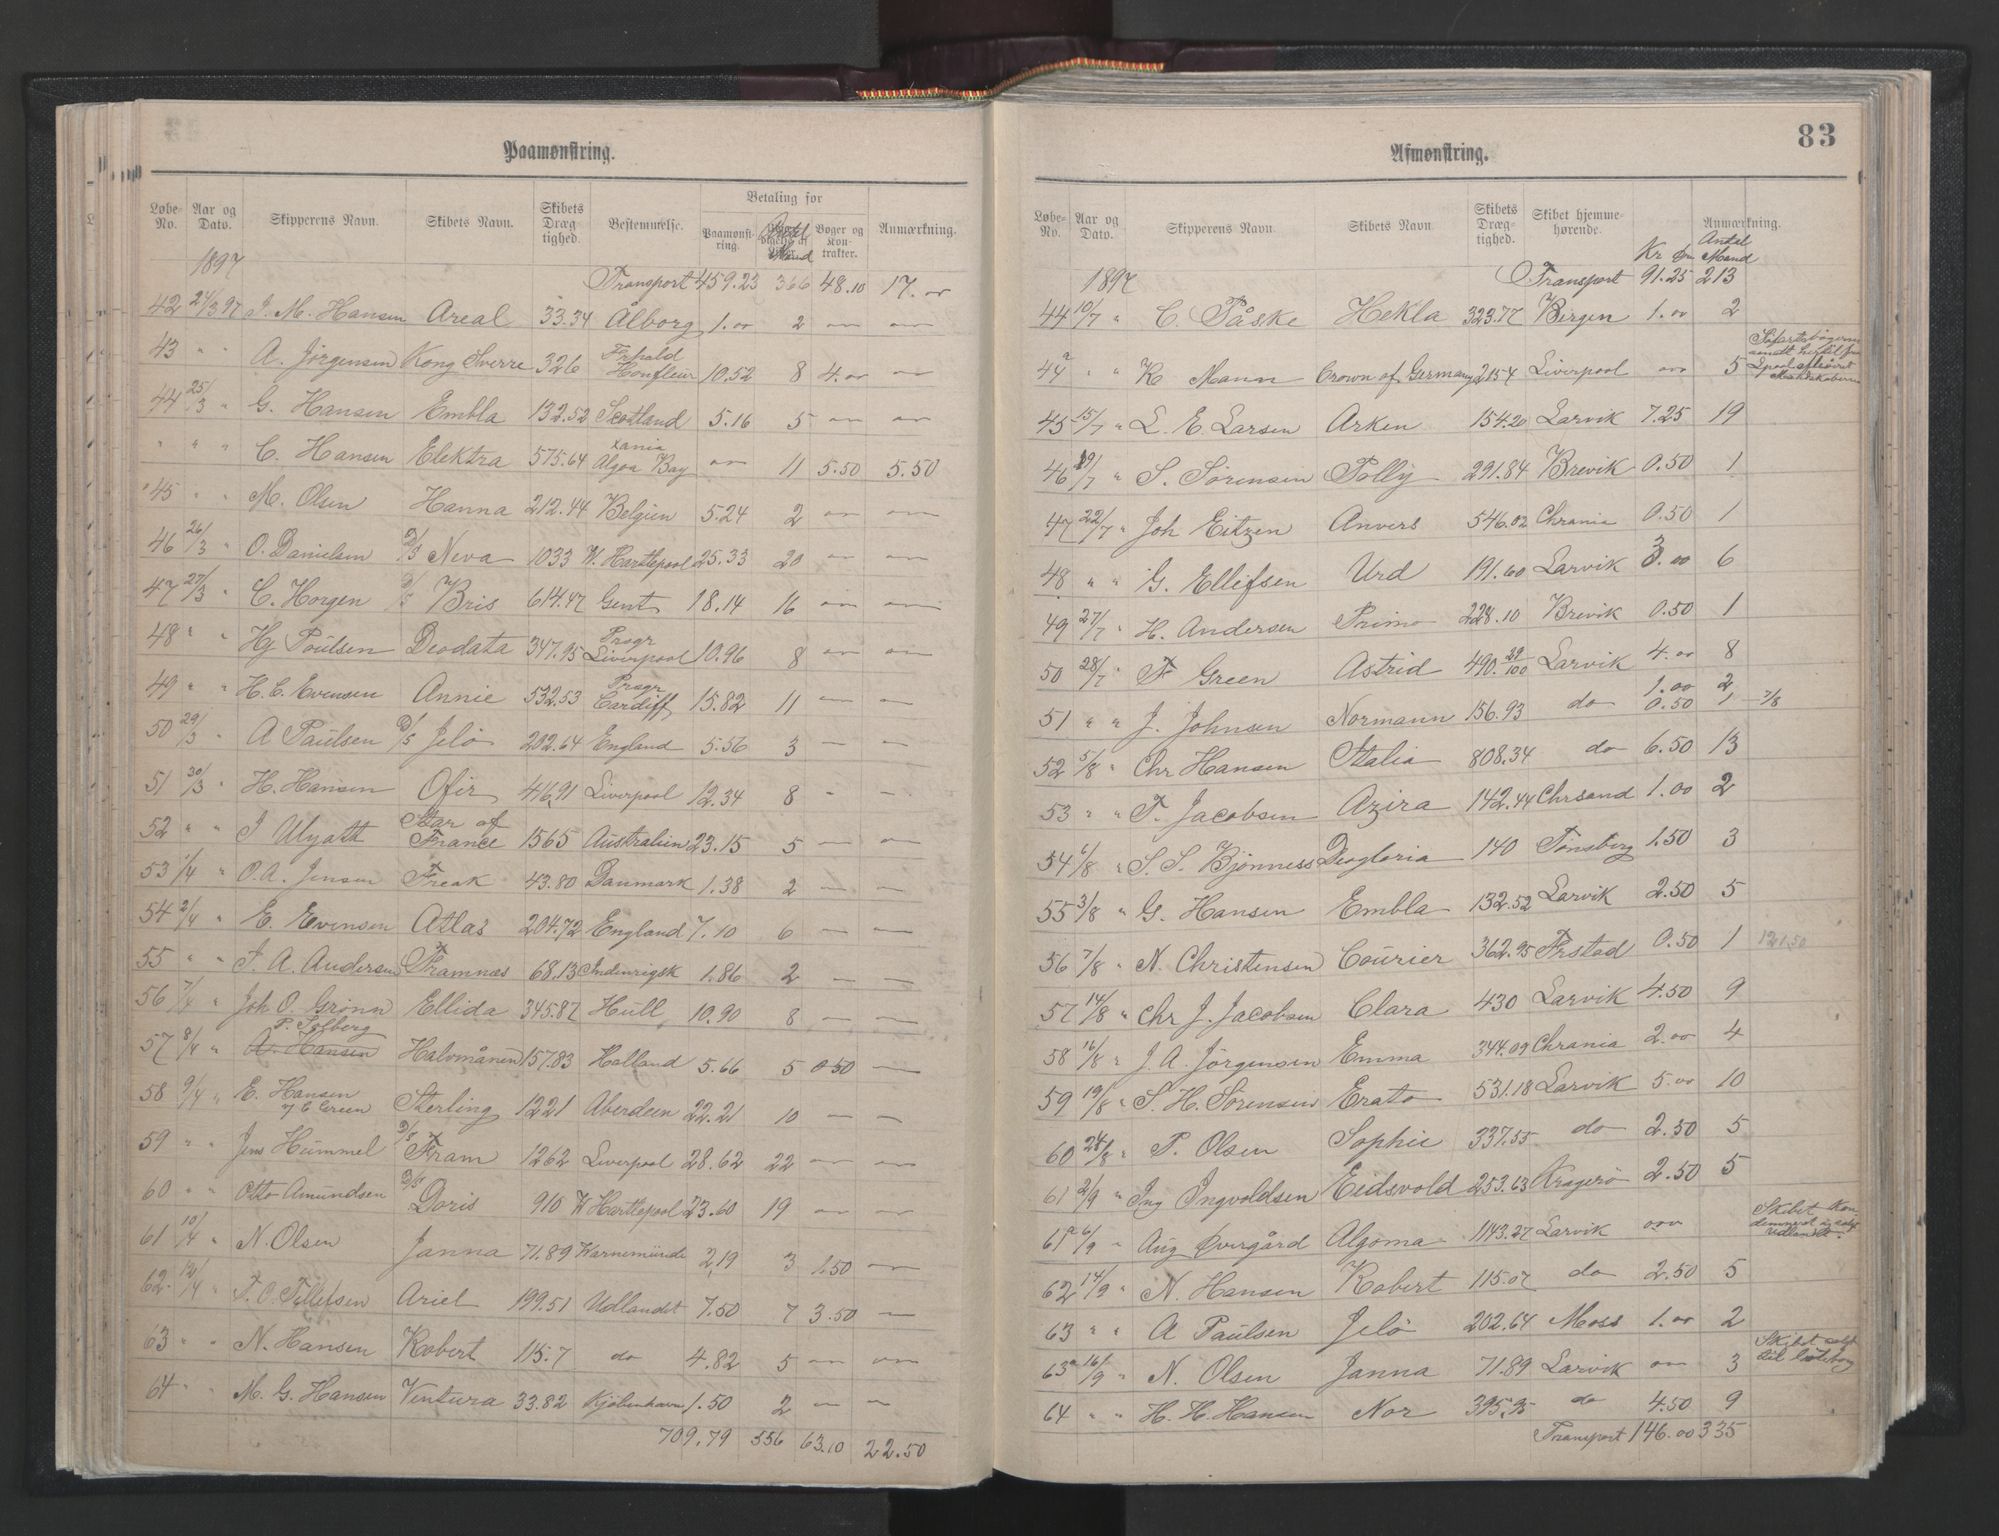 Paamønstring.
Løbe-No. Aar og Dato. Skipperens Navn. Skibets Navn. Skibets Dræg tighed. Bestemmelse. Betaling for Paamønst-ring. Antal Mand Bøger og Kon trakter. Anmærkning.
1897 Transport 459.23 366 48.10 17.00
42 24/3 97 J. M. Hansen Areal 33.34 Ålborg 1.00 2 — —
43 " " A. Jørgensen Kong Sverre 326 Frhald Honfleur 10.52 8 4.00 —
44 25/3 " G. Hansen Embla 132.52 Scotland 5.16 5 — —
" " " C. Hansen Elektra 575.64 Xania Algoa Bay — 11 5.50 5.50
45 " " M. Olsen Hanna 212.44 Belgien 5.24 2 — —
46 26/3 " O. Danielsen D/S Neva 1033 W. Hartlepool 25.33 20 — —
47 27/3 " C. Horgen D/S Bris 614.47 Gent 18.14 16 — —
48 " " Hj Poulsen Deodata 347.95 Prsgr Liverpool 10.96 8 — —
49 " " H. C. Evensen Annie 532.53 Prsgr Cardiff 15.82 11 — —
50 29/3 " A Paulsen D/S Jelø 202.64 England 5.56 3 — —
51 30/3 " H. Hansen Ofir 416.91 Liverpool 12.34 8 - -
52 " " J Ulyath Star of France 1565 Australien 23.15 5 — —
53 1/4 " O. A. Jensen Freak 43.80 Danmark 1.38 2 — —
54 2/4 " E. Evensen Atlas 204.72 England 7.10 6 — —
55 " " J. A. Andersen Framnæs 68.13 Indenrigsk 1.86 2 — —
56 7/4 " Joh O. Grønn Ellida 345.87 Hull 10.90 8 — —
57 8/4 " P. Solberg A. Hansen Halvmånen 157.83 Holland 5.66 5 0.50 —
58 9/4 " E. Hansen v/ C Green Sterling 1221 Aberdeen 22.21 10 — —
59 " " Jens Hummel D/S Fram 1262 Liverpool 28.62 22 — —
60 " " Otto Amundsen D/S Doris 910 W Hartlepool 23.60 19 — —
61 10/4 " N. Olsen Janna 71.89 Warnemünde 2.19 3 1.50 —
62 12/4 " T. O. Tellefsen Ariel 199.51 Udlandet 7.50 7 3.50 —
63 " " N. Hansen Robert 115.7 do 4.82 5 — —
64 " " M. G. Hansen Ventura 33.82 Kjøbenhavn 1.50 2 — —
709.79 556 63.10 22.50
83
Afmønstring.
Løbe-No. Aar og Dato. Skipperens Navn. Skibets Navn Skibets Dræg-tighed. Skibet hjemme-hørende. Kr Øre Anmærkning. Antal Mand
1897 Transport 91.25 213
44 10/7 " C. Påske Hekla 323.77 Bergen 1.00 2
44a " " K Mann Crown of Germany 2154 Liverpool — 5 Søfartsbøgerne
45 15/7 " L. E. Larsen Arken 154.20 Larvik 7.25 19
46 19/7 " S. Sørensen Polly 291.84 Brevik 0.50 1
47 22/7 " Joh Eitzen Anvers 546.02 Chrania 0.50 1
48 " " G. Ellefsen Urd 191.60 Larvik 3.00 6
49 27/7 " H. Andersen Primo 228.10 Brevik 0.50 1
50 28/7 " F Green Astrid 490.29/100 Larvik 4.00 8
51 " " J. Johnsen Normann 156.93 do 1.00 2
0.50 1 — 7/8
52 5/8 " Chr Hansen Italia 808.34 do 6.50 13
53 " " T. Jacobsen Azira 142.44 Chrsand 1.00 2
54 6/8 " S. S. Bjønness Deogloria 140 Tønsberg 1.50 3
55 3/8 " G. Hansen Embla 132.52 Larvik 2.50 5
56 7/8 " N. Christensen Courier 362.95 Frstad 0.50 1 121.50
57 14/8 " Chr J. Jacobsen Clara 430 Larvik 4.50 9
58 16/8 " J. A. Jørgensen Emma 344.09 Chrania 2.00 4
59 19/8 " S. H. Sørensen Erato 531.18 Larvik 5.00 10
60 24/8 " P. Olsen Sophie 337.55 do 2.50 5
61 2/9 " Ing Ingvoldsen Eidsvold 253.63 Kragerø 2.50 5
61a 6/9 " Aug Øvergård Algoma 1143.27 Larvik — Skibet kon demneret og solgt i Udlandet.
62 14/9 " N. Hansen Robert 115.07 do 2.50 5
63 " " A Paulsen Jelø 202.64 Moss 1.00 2
63a 16/9 " N. Olsen Janna 71.89 Larvik — 3 Skibet solgt til Gøteborg
64 " " H. H. Hansen Nor 395.95 do 4.50 9
Transport 146.00 335